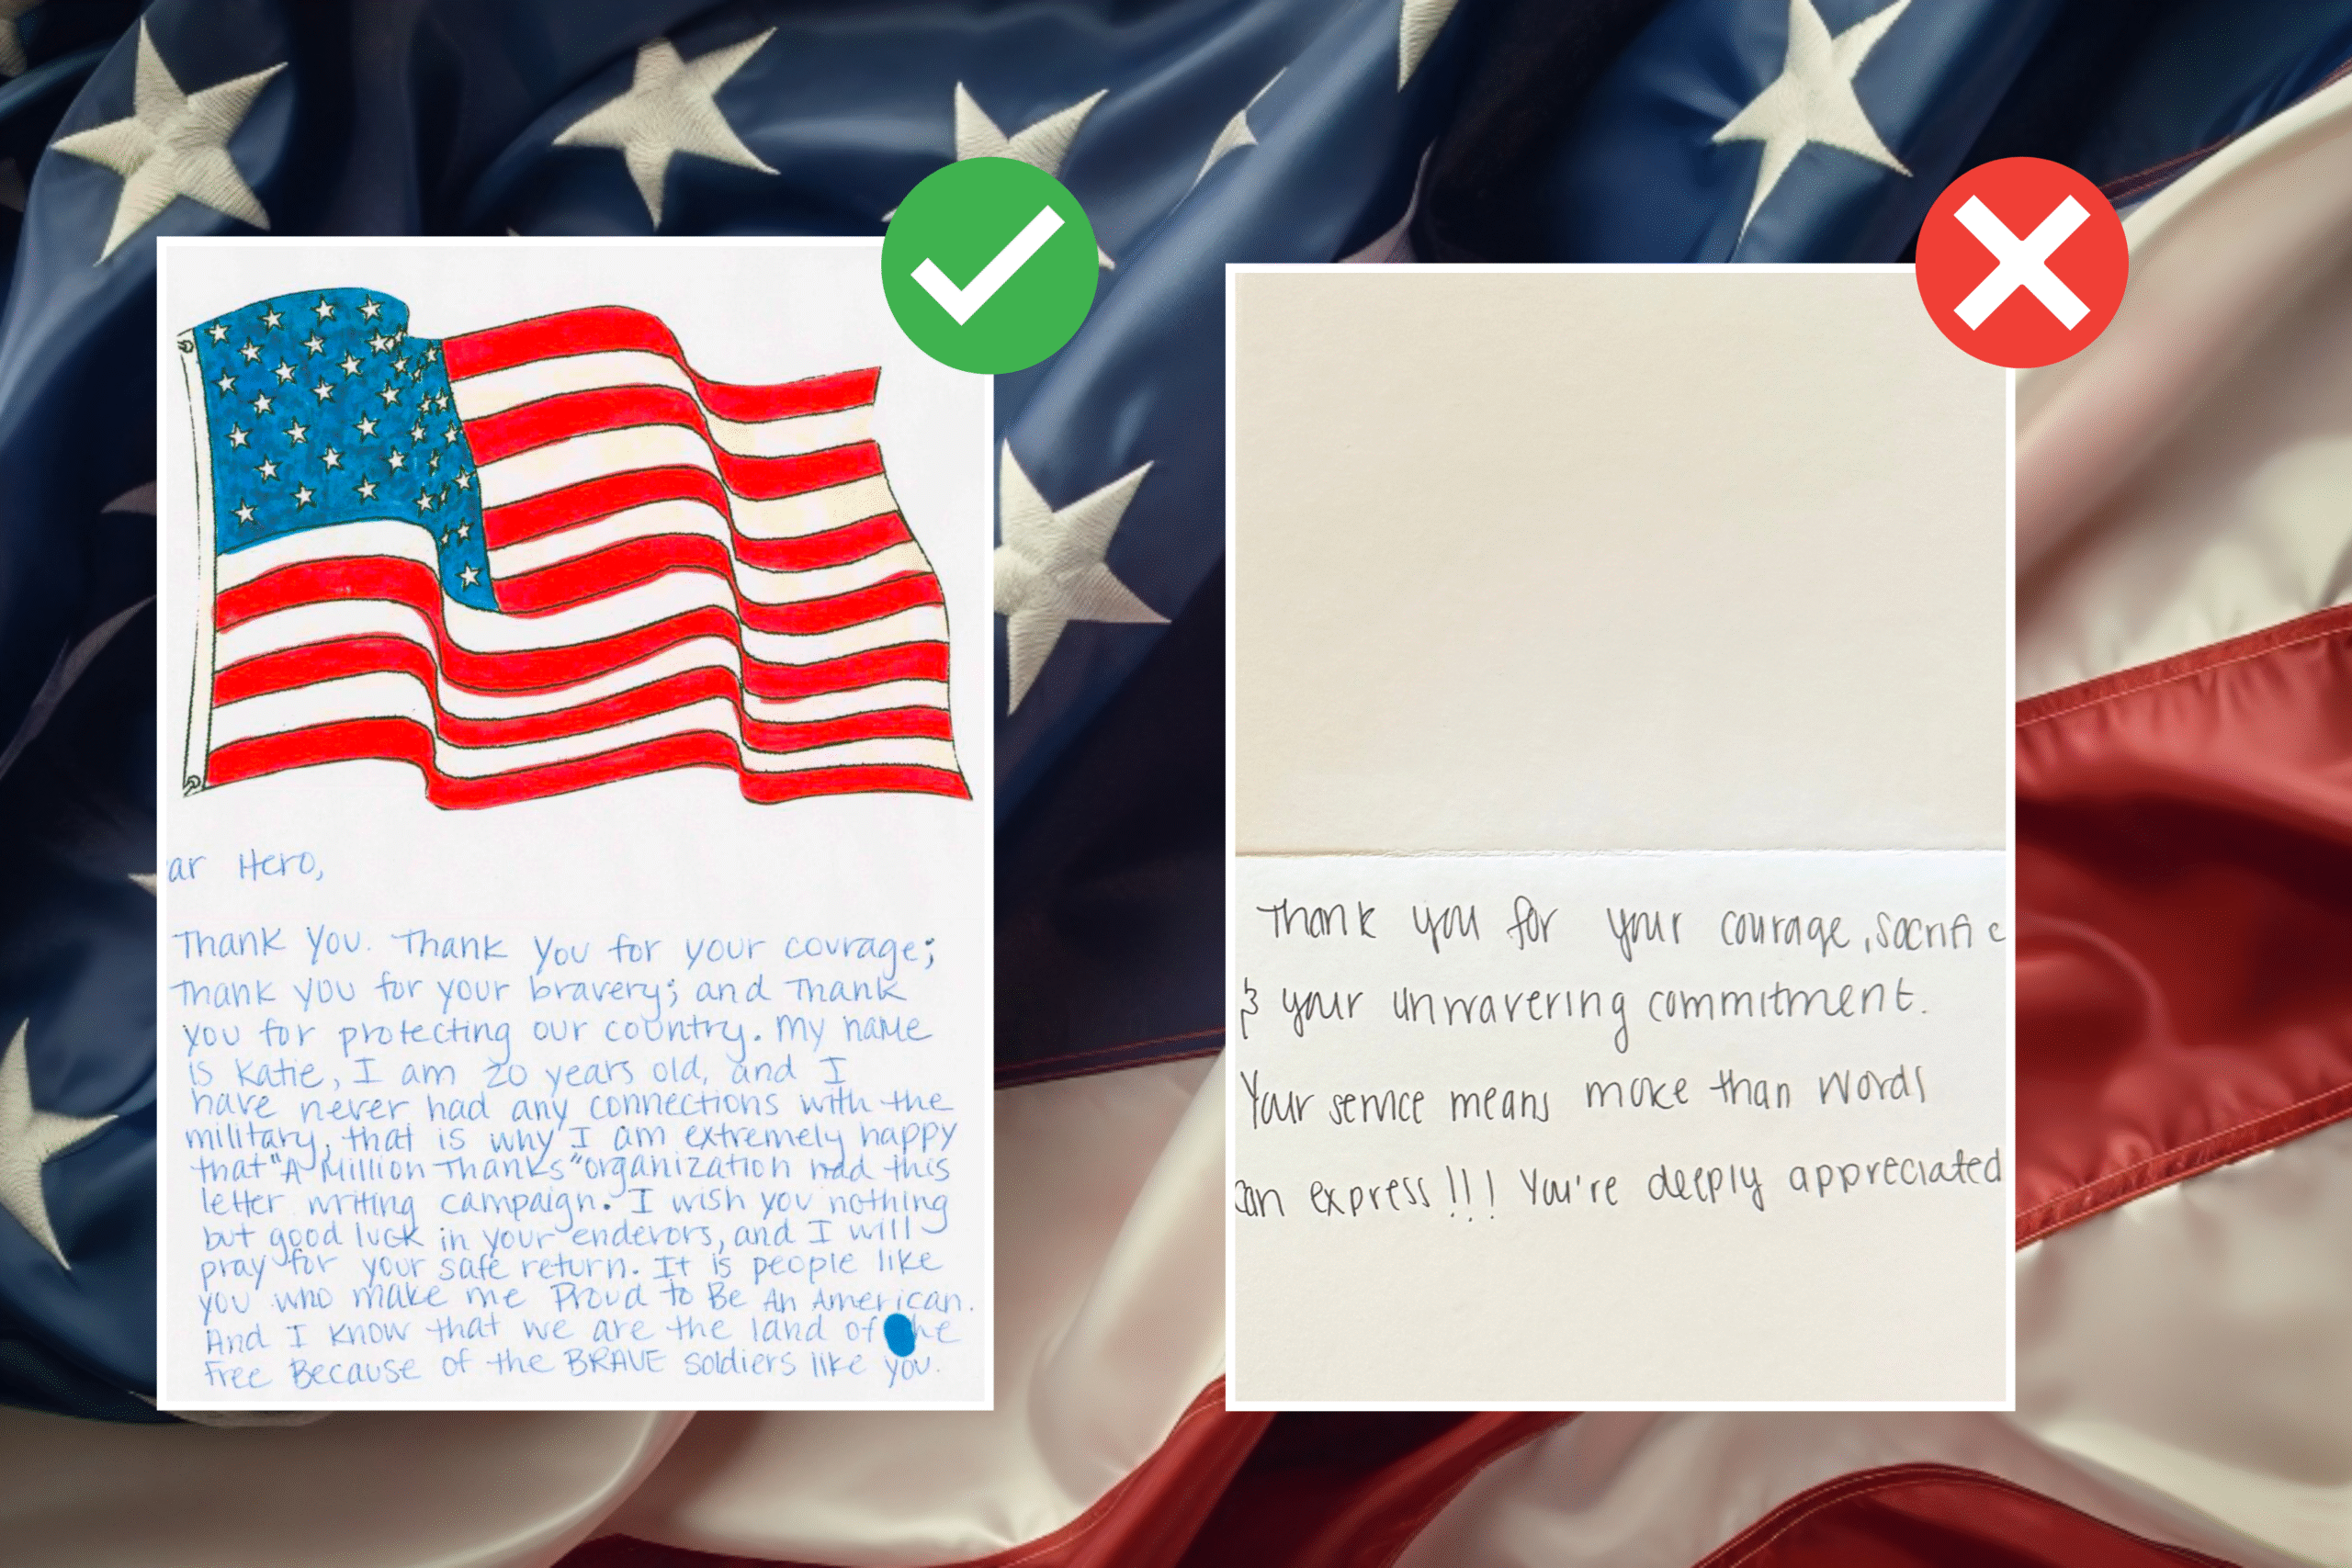 ar Hero,
Thank you. Thank you for your courage;
Thank you for your bravery; and Thank
you for protecting our country. My name
is Katie, I am 20 years old, and I
have never had any connections with the
military, that is why I am extremely happy
that "A Million Thanks" organization had this
letter writing campaign. I wish you nothing
but good luck in your enderors, and I will
pray for your safe return. It is people like
you who make me Proud to Be An American.
And I know that we are the land of he
Free Because of the BRAVE soldiers like you.
Thank you for your courage, sacrific
& your unwavering commitment.
Your service means more than words
can express!!! You're deeply appreciated